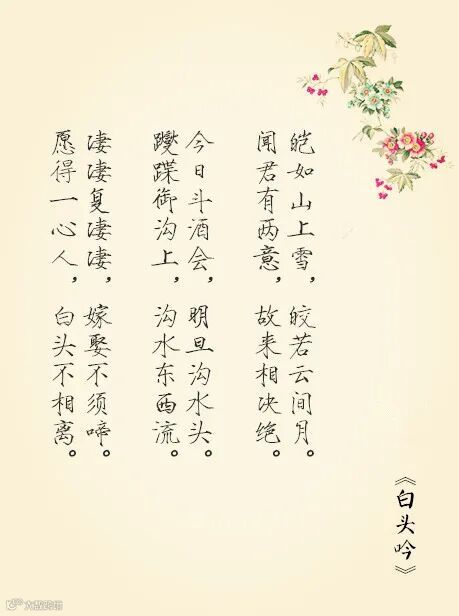 皑如山上雪，皎若云间月。
闻君有两意，故来相决绝。
今日斗酒会，明旦沟水头。
躞蹀御沟上，沟水东西流。
凄凄复凄凄，嫁娶不须啼。
愿得一心人，白头不相离。
《白头吟》